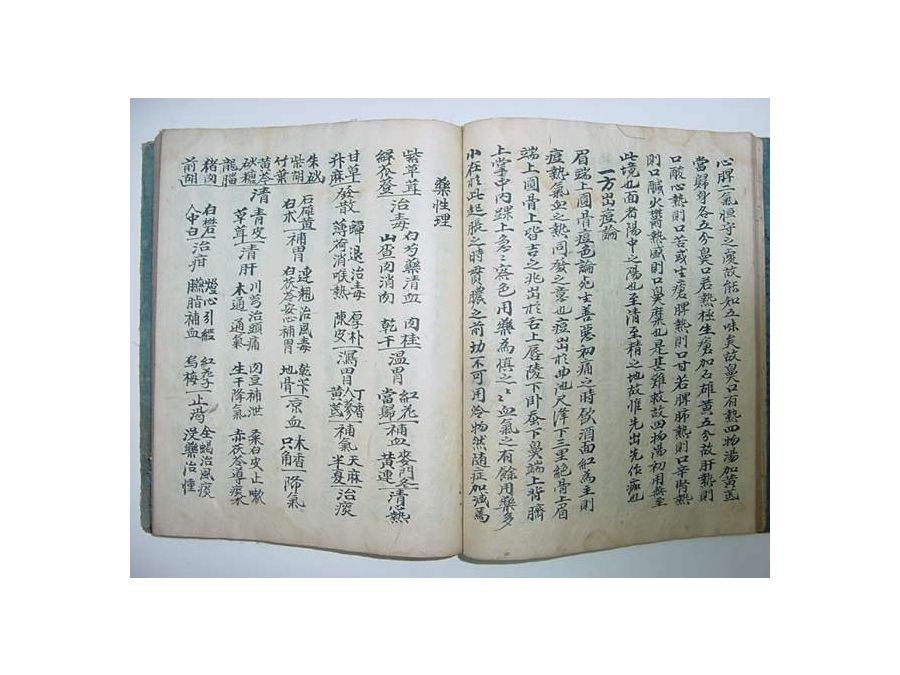 心脾二氣恒守之處故能知五味矣故鼻口有熱四物湯加黃芪
當歸身各五分鼻口若熱極生瘡加石雄黃五分故肝熱則
口酸心熱則口苦或生瘡脾熱則口甘若脾肺熱則口辛腎熱
則口鹹火欝熱盛則口臭糜也是甚難救故四物湯初用無至
此境也面者陽中之陽也至清至精之地故惟先出先作痂也
一方出痘論
眉端上圓骨痘色論先士善惡初痛之時飲酒面紅為主則
痘熱氣血之熱同發之意也痘出於曲池尺澤下三里絕骨上眉
端上圓骨上皆吉之兆出於舌上唇陵下卧蚕下鼻端上背臍
上掌中內踝上多之察色用藥為慎之之血氣之有餘用藥多
小在於此起脹之時貫膿之前切不可用冷物然隨症加減焉
藥性理
紫草茸 治毒 白芍藥清血 肉桂 溫胃 紅花 補血 麥門冬 清心熱
鮮衣登 山查肉消肉 乾干 當歸 黃連
甘草 發散 蟬退治毒 厚朴 瀉胃 丁香 人參 補氣 天麻 治痰
升麻 薄荷消喉熱 陳皮 黃芪 半夏
朱砂 石雄黃 補胃 連翹治風毒 乾芐 凉血 木香 降氣
柴胡 白朮 白茯苓安心補胃 地骨 只角
竹葉 清 青皮 清肝 川芎治頭痛 肉豆補泄 桑白皮止嗽
黃芩 草茸 木通通氣 生干降氣 赤茯苓導痰
砂糖
龍腦 白礬 治疳 燈心引經 紅花子 止渴 全蝎治風痰
猪肉 人中白 臙脂補血 烏梅 沒藥治㾮
前胡